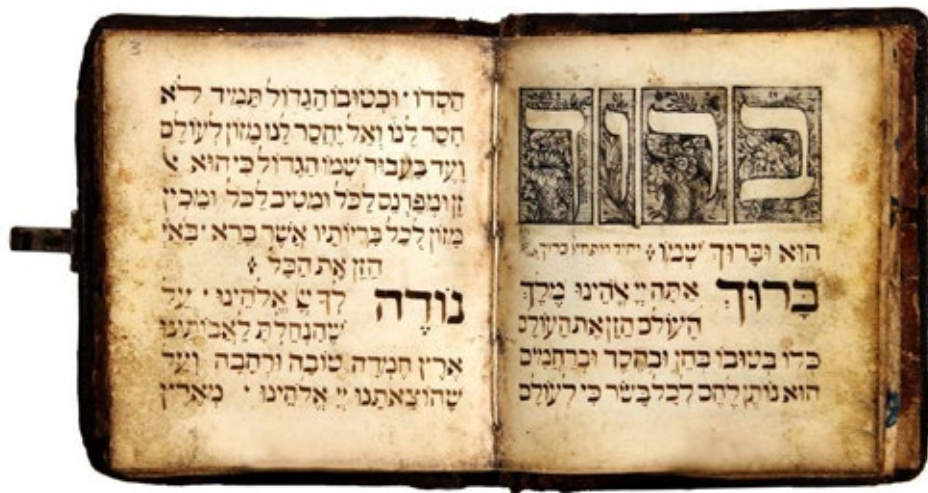 בָּרוּךְ
הוּא וּבָרוּךְ שְׁמוֹ
בָּרוּךְ אַתָּה יְיָ אֱלֹהֵינוּ מֶלֶךְ
הָעוֹלָם הַזָּן אֶת הָעוֹלָם
כֻּלּוֹ בְּטוּבוֹ בְּחֵן וּבְחֶסֶד וּבְרַחֲמִים
הוּא נוֹתֵן לֶחֶם לְכָל בָּשָׂר כִּי לְעוֹלָם
חַסְדּוֹ · וּבְטוּבוֹ הַגָּדוֹל תָּמִיד לֹא
חָסַר לָנוּ וְאַל יֶחְסַר לָנוּ מָזוֹן לְעוֹלָם
וָעֶד בַּעֲבוּר שְׁמוֹ הַגָּדוֹל כִּי הוּא
זָן וּמְפַרְנֵס לַכֹּל וּמֵטִיב לַכֹּל וּמֵכִין
מָזוֹן לְכָל בְּרִיּוֹתָיו אֲשֶׁר בָּרָא · בָּאִי
הַזָּן אֶת הַכֹּל
נוֹדֶה לְךָ יְיָ אֱלֹהֵינוּ · עַל
שֶׁהִנְחַלְתָּ לַאֲבוֹתֵינוּ
אֶרֶץ חֶמְדָּה טוֹבָה וּרְחָבָה וְעַל
שֶׁהוֹצֵאתָנוּ יְיָ אֱלֹהֵינוּ · מֵאֶרֶץ